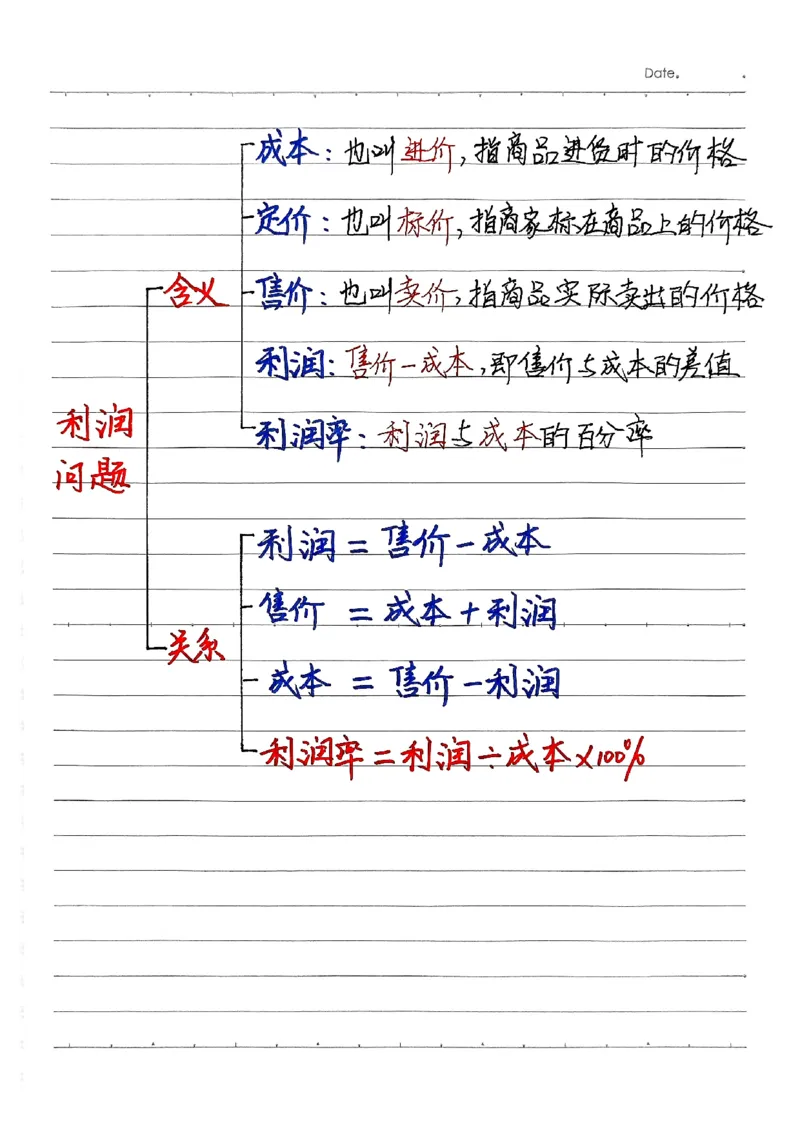 Date.
成本：也叫进价，指商品进货时的价格
定价：也叫标价，指商家标在商品上的价格
含义
售价：也叫卖价，指商品实际卖出的价格
利润：售价－成本，即售价与成本的差值
利润率：利润与成本的百分率
利润
问题
利润＝售价－成本
售价＝成本＋利润
关系
成本＝售价－利润
利润率＝利润÷成本×100%